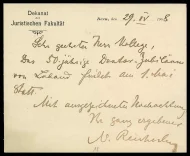 Dekanat
der
Juristischen Fakultät
Bern, den 29. IV 1908
Sehr geehrter Herr Kollege,
Das 50-jährige Doctor-Jubiläum
von Laband findet am 1. Mai
statt.
Mit ausgezeichneter Hochachtung
Ihr ganz ergebener